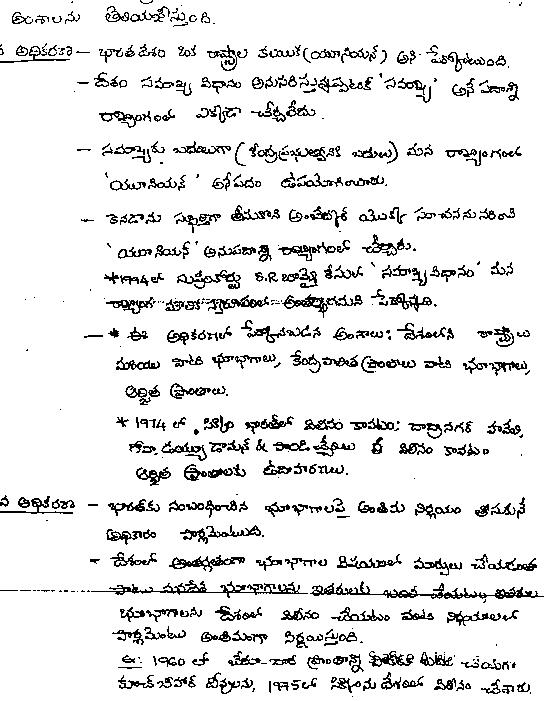 అంశాలను తెలియజేస్తుంది.
వ అధికరణ – భారతదేశం ఒక రాష్ట్రాల కలయిక (యూనియన్) అని పేర్కొంటుంది.
– దేశం సమాఖ్య విధానం అనుసరిస్తున్నప్పటికీ 'సమాఖ్య' అనే పదాన్ని
రాజ్యాంగంలో ఎక్కడా చేర్చలేదు.
– సమాఖ్యకు బదులుగా (కేంద్రప్రభుత్వానికి బదులు) మన రాజ్యాంగంలో
'యూనియన్' అనే పదం ఉపయోగించారు.
– కెనడాను స్ఫూర్తిగా తీసుకొని అంబేద్కర్ యొక్క సూచన ననుసరించి
'యూనియన్' అను పదాన్ని రాజ్యాంగంలో చేర్చారు.
* 1994 లో సుప్రీంకోర్టు S.R బొమ్మై కేసులో 'సమాఖ్య విధానం' మన
రాజ్యాంగ మౌలిక స్వరూపంలో అంతర్భాగమని పేర్కొన్నది.
– * ఈ అధికరణలో పేర్కొనబడిన అంశాలు: దేశంలోని రాష్ట్రాలు
మరియు వాటి భూభాగాలు, కేంద్రపాలిత ప్రాంతాలు వాటి భూభాగాలు,
ఆర్జిత ప్రాంతాలు.
* 1974 లో సిక్కిం భారత్‌లో విలీనం కావటం: దాద్రానగర్ హవేలి,
గోవా, డయ్యూ డామన్ & పాండిచ్చేరిలు విలీనం కావటం
ఆర్జిత ప్రాంతాలకు ఉదాహరణలు.
వ అధికరణ – భారత్‌కు సంబంధించిన భూభాగాలపై అంతిమ నిర్ణయం తీసుకునే
అధికారం పార్లమెంటుది.
– దేశంలో అంతర్గతంగా భూభాగాల విషయంలో మార్పులు చేయడంతో
పాటు మనదేశ భూభాగాలను ఇతరులకు బదిలీ చేయటం, ఇతరుల
భూభాగాలను దేశంలో విలీనం చేయటం వంటి నిర్ణయాలలో
పార్లమెంటు అంతిమంగా నిర్ణయిస్తుంది.
ఉ: 1960 లో బేరూబారి ప్రాంతాన్ని బదిలీ చేయగా
కూచ్ బీహార్ దీవులను, 1975లో సిక్కింను దేశంలో విలీనం చేశారు.